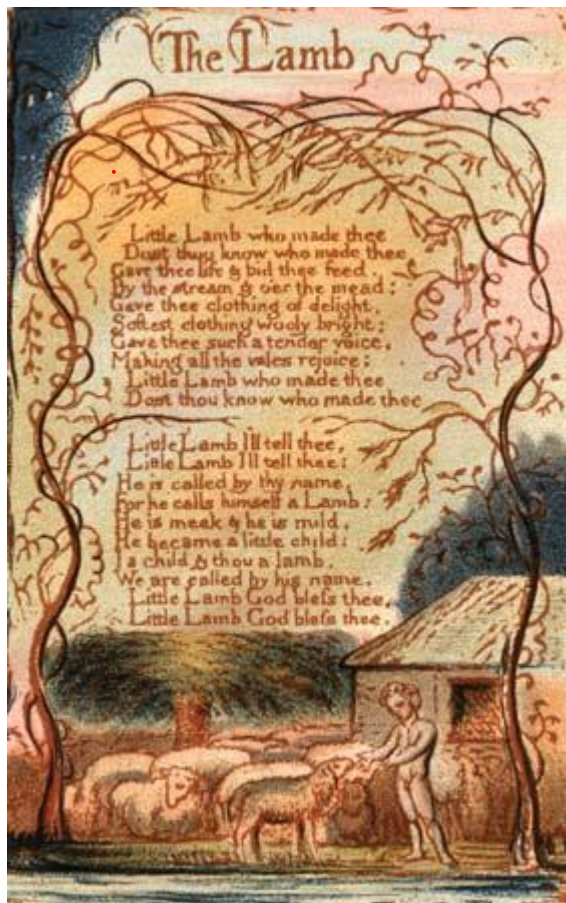 The Lamb
Little Lamb who made thee
Dost thou know who made thee
Gave thee life & bid thee feed.
By the stream & o'er the mead;
Gave thee clothing of delight,
Softest clothing wooly bright;
Gave thee such a tender voice,
Making all the vales rejoice:
Little Lamb who made thee
Dost thou know who made thee
Little Lamb I'll tell thee,
Little Lamb I'll tell thee:
He is called by thy name,
For he calls himself a Lamb:
He is meek & he is mild,
He became a little child:
I a child & thou a lamb,
We are called by his name.
Little Lamb God bleſs thee,
Little Lamb God bleſs thee.